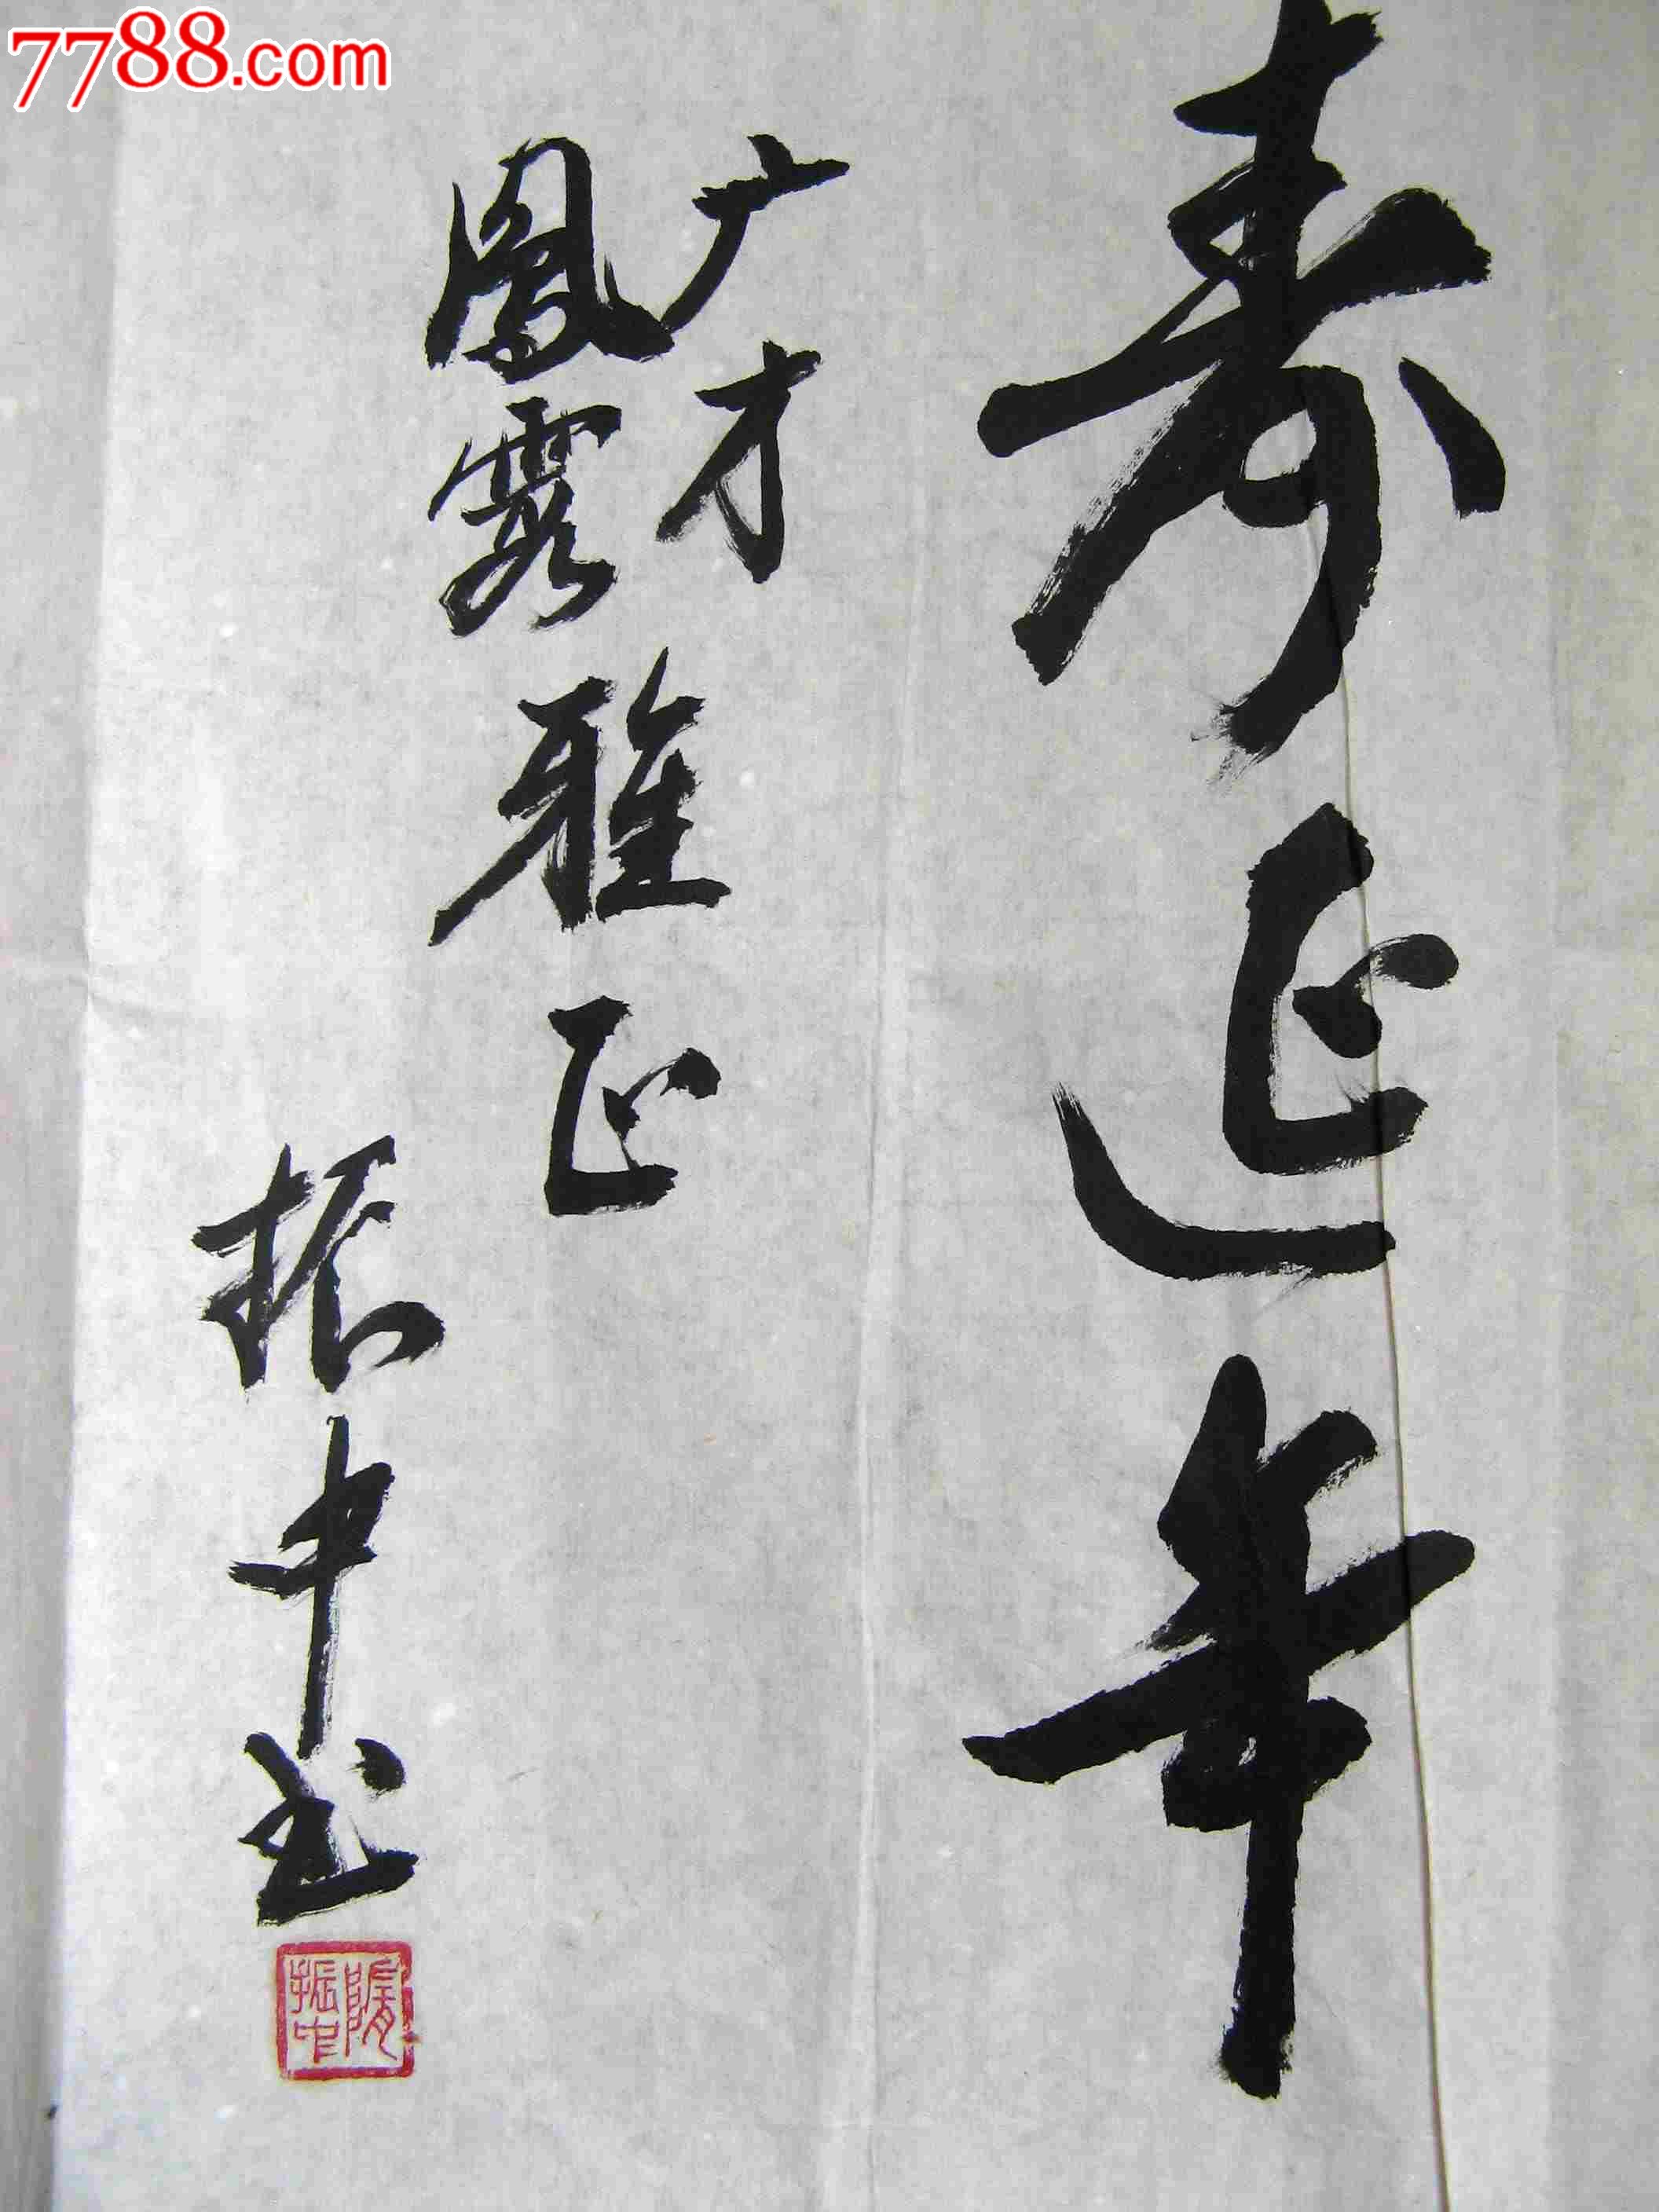 7788.com
寿延年
广才
鳳霞雅正
振中书
隋振中